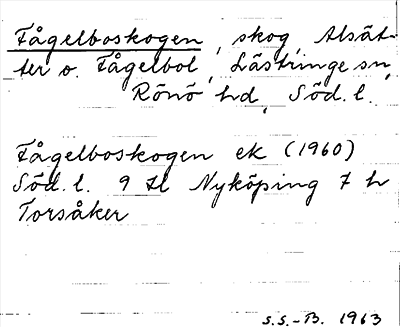 Fågelboskogen, skog, Alsät-
ter o. Fågelbol, Lästringe sn,
Rönö hd, Söd. l.
Fågelboskogen ek (1960)
Söd. l. 9 H Nyköping 7 h
Torsåker
S.S.-B. 1963